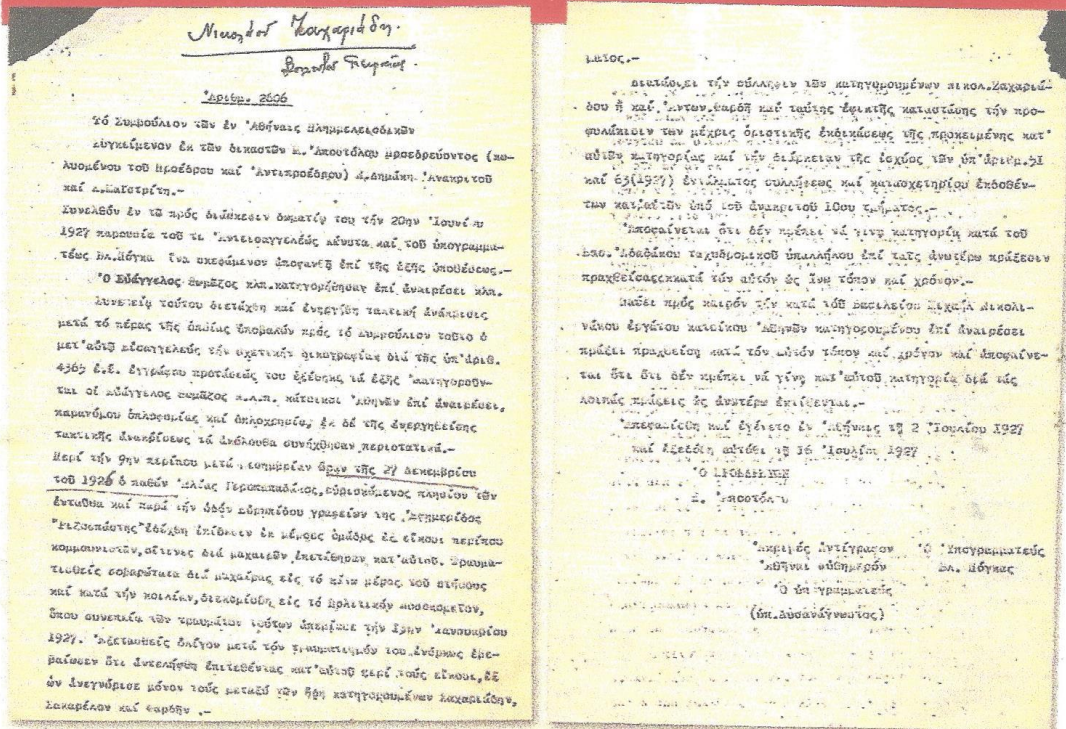 Νικολάου Ζαχαριάδη.
Ἀριθμ. 2606
Τό Συμβούλιον τῶν ἐν Ἀθήναις Πλημμελειοδικῶν
συγκείμενον ἐκ τῶν δικαστῶν Κ. Ἀποστόλου προεδρεύοντος (κω-
λυομένου τοῦ Προέδρου καί Ἀντιπροέδρου) Δημάκη Ἀνακριτοῦ
καί
Συνελθόν ἐν τῷ πρός διάσκεψιν δωματίῳ του τήν 20ην Ἰουνίου
1927 παρουσία τοῦ Ἀντεισαγγελέως καί τοῦ ὑπογραμμα-
τέως Βλ.Πόγκα ἵνα σκεφόμενον ἀποφανθῇ ἐπί τῆς ἑξῆς ὑποθέσεως.-
Ὁ Εὐάγγελος κλπ.κατηγορήθησαν ἐπί ἀναιρέσει κλπ.
Συνεπείᾳ τούτου διετάχθη καί ἐνηργήθη τακτική ἀνάκρισις
μετά τό πέρας τῆς ὁποίας ὑποβαλών πρός τό Συμβούλιον τοῦτο ὁ
μετ'αὐτοῦ εἰσαγγελεύς τήν σχετικήν δικογραφίαν διά τῆς ὑπ'ἀριθ.
ἐ.ἔ. ἐγγράφου προτάσεώς του ἐξέθηκε τά ἑξῆς Κατηγοροῦν-
ται οἱ Εὐάγγελος κ.λ.π. κάτοικοι Ἀθηνῶν ἐπί ἀναιρέσει,
παρανόμου ὁπλοφορίας καί ὁπλοχρησία, ἐκ δέ τῆς ἐνεργηθείσης
τακτικῆς ἀνακρίσεως τά ἀκόλουθα συνήχθησαν περιστατικά.-
Περί τήν 9ην περίπου μετά μεσημβρίαν ὥραν τῆς 27 Δεκεμβρίου
τοῦ 1926 ὁ παθών Ἠλίας Γεροπαπαδάκος,εὑρισκόμενος πλησίον τῶν
ἐνταῦθα καί παρά τήν ὁδόν Εὐριπίδου γραφείων τῆς Ἐφημερίδος
"Ριζοσπάστης" ἐδέχθη ἐπίθεσιν ἐκ μέρους ὁμάδος ἐξ εἴκοσι περίπου
κομμουνιστῶν,οἵτινες διά μαχαιρῶν ἐπετέθησαν κατ'αὐτοῦ. Τραυμα-
τισθείς σοβαρώτατα διά μαχαίρας εἰς τό μέρος τοῦ στήθους
καί κατά τήν κοιλίαν,διεκομίσθη εἰς τό Πολιτικόν Νοσοκομεῖον,
ὅπου συνεπείᾳ τῶν τραυμάτων τούτων ἀπεβίωσε τήν Ἰανουαρίου
1927. Ἐξετασθείς ὀλίγον μετά τόν τραυματισμόν του ἐνόρκως ἐβε-
βαίωσεν ὅτι ἀντελήφθη ἐπιτεθέντας κατ'αὐτοῦ περί τούς εἴκοσι,ἐξ
ὧν ἀνεγνώρισε μόνον τούς μεταξύ τῶν ἤδη κατηγορουμένων Ζαχαριάδην,
Σακαρέλον καί Φαρδῆν .-
ματος.-
Διατάσσει τήν σύλληψιν τῶν κατηγορουμένων Νικολ.Ζαχαριά-
δου ἤ καί Ἀντων.Φαρδῆ καί ταύτης ἐφικτῆς καταστάσης τήν προ-
φυλάκισιν των μέχρις ὁριστικῆς ἐκδικάσεως τῆς προκειμένης κατ'
αὐτῶν κατηγορίας καί τήν διάρκειαν τῆς ἰσχύος τῶν ὑπ'ἀριθμ.
καί 63(1927) ἐντάλματος συλλήψεως καί κατασχετηρίου ἐκδοθέν-
των κατ'αὐτῶν ὑπό τοῦ ἀνακριτοῦ 10ου τμήματος.-
Ἀποφαίνεται ὅτι δέν πρέπει νά γίνῃ κατηγορία κατά τοῦ
Βασ. ταχυδρομικοῦ ὑπαλλήλου ἐπί ταῖς ἀνωτέρω πράξεσιν
πραχθείσαις κατά τόν αὐτόν ὡς ἄνω τόπον καί χρόνον.-
Παύει πρός καιρόν τήν κατά τοῦ Βασιλείου Μιχαήλ Νικολι-
νάκου ἐργάτου κατοίκου Ἀθηνῶν κατηγορουμένου ἐπί ἀναιρέσει
πράξει πραχθείσῃ κατά τόν αὐτόν τόπον καί χρόνον καί ἀποφαίνε-
ται ὅτι ὅτι δέν πρέπει νά γίνῃ κατ'αὐτοῦ κατηγορία διά τάς
λοιπάς πράξεις ὡς ἀνωτέρω ἐκτίθεται.-
Ἀπεφασίσθη καί ἐγένετο ἐν Ἀθήναις τῇ 2 Ἰουλίου 1927
καί ἐξεδόθη αὐτόθι τῇ 16 Ἰουλίου 1927
Ὁ ΠΡΟΕΔΡΕΥΩΝ
Κ. Ἀποστόλου
Ἀκριβές Ἀντίγραφον Ὁ Ὑπογραμματεύς
Ἀθῆναι αὐθημερόν Βλ. Πόγκας
Ὁ ὑπογραμματεύς
(ὑπ.Δυσανάγνωστος)